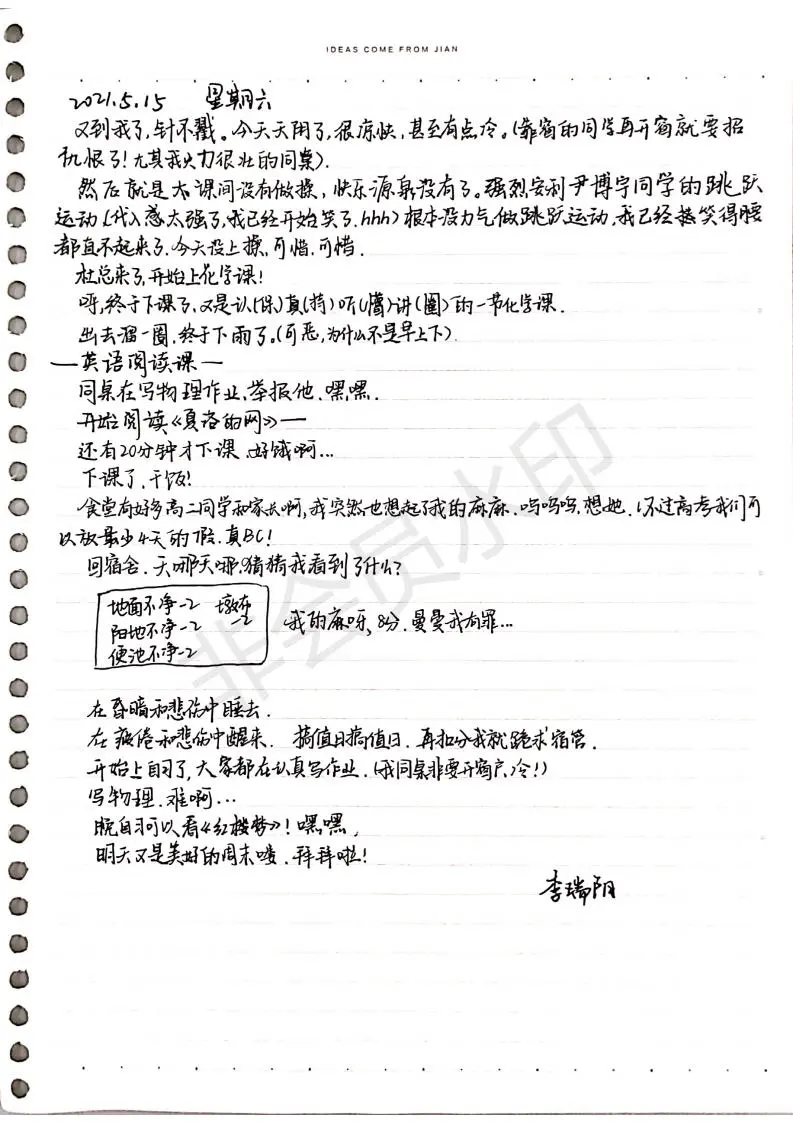 IDEAS COME FROM JIAN
2021.5.15 星期六
又到我了,针不戳。今天天阴了,很凉快,甚至有点冷。(靠窗的同学再开窗就要招
仇恨了!尤其我火力很壮的同桌).
然后就是大课间没有做操,快乐源泉没有了。强烈安利尹博宇同学的跳跃
运动(代入感太强了,我已经开始笑了.hhh)根本没力气做跳跃运动,我已经笑得腰
都直不起来了.今天没上操,可惜.可惜.
杜总来了,开始上化学课!
呀,终于下课了,又是认(保)真(持)听(懵)讲(圈)的一节化学课.
出去溜一圈,终于下雨了。(可恶,为什么不是早上下)
—英语阅读课—
同桌在写物理作业,举报他.嘿嘿.
开始阅读《夏洛的网》—
还有20分钟才下课,好饿啊...
下课了,干饭!
食堂有好多高二同学和家长啊,我突然也想起了我的麻麻.呜呜呜,想她.(不过高考我们可
以放最少4天的假.真BC!
回宿舍.天哪天哪.猜猜我看到了什么?
地面不净-2 墩布-2
阳地不净-2
便池不净-2
我的麻呀,8分.曼曼我有罪...
在昏暗和悲伤中睡去.
在疲倦和悲伤中醒来. 搞值日搞值日.再扣分我就跪求宿管.
开始上自习了,大家都在认真写作业.(我同桌非要开窗户,冷!)
写物理.难啊...
晚自习可以看《红楼梦》!嘿嘿,
明天又是美好的周末喽.拜拜啦!
李瑞阳
非会员水印